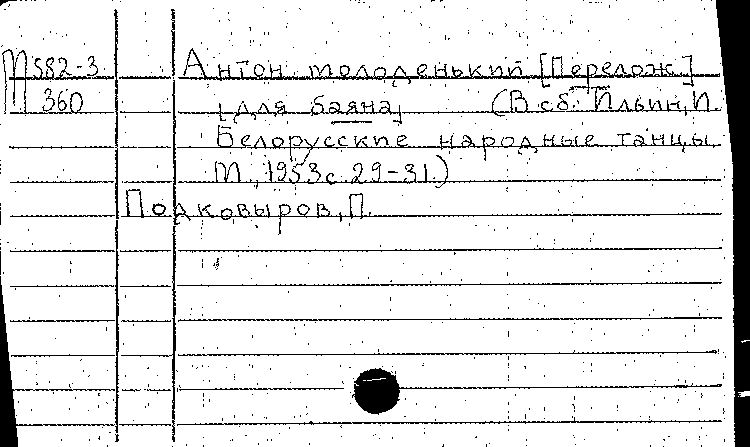 М582-3 Антон молоденький [Перелож.]
360 [для баяна] (В сб: Ильин, И.
Белорусские народные танцы
М., 1953 с. 29-31)
Подковыров, П.